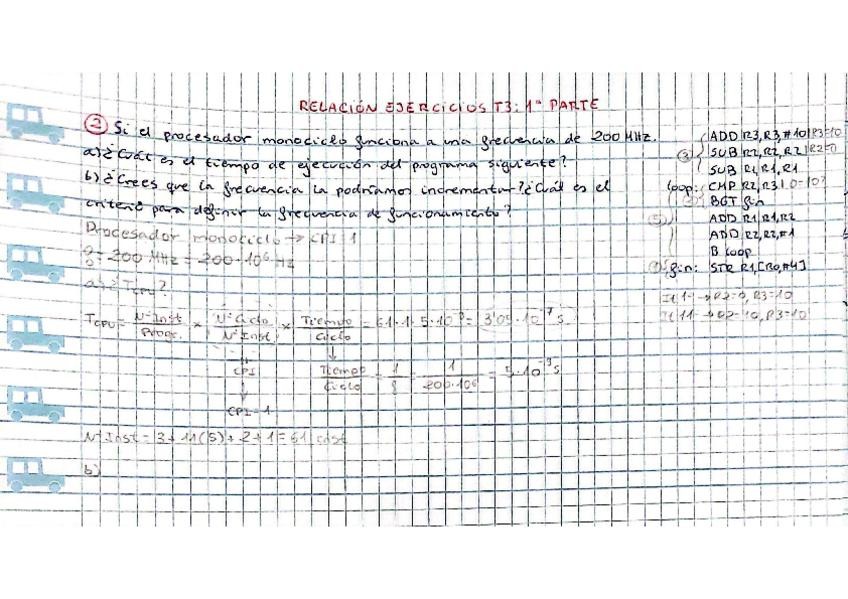 RELACIÓN EJERCICIOS T3: 1ª PARTE
② Si el procesador monociclo funciona a una frecuencia de 200 MHz.
a) ¿Cuál es el tiempo de ejecución del programa siguiente?
b) ¿Crees que la frecuencia la podríamos incrementar? ¿Cuál es el
criterio para definir la frecuencia de funcionamiento?
③ ADD R3, R3, #10 | R3=10
SUB R2, R2, R2 | R2=0
SUB R1, R1, R1
loop: CMP R2, R3
BGT fin
⑤ ADD R1, R1, R2
ADD R2, R2, #1
B loop
fin: STR R1, [R0, #4]
It 1 → R2=0, R3=10
It 11 → R2=10, R3=10
Procesador monociclo → CPI=1
f = 200 MHz = 200·10⁶ Hz
a) ¿TCPU?
TCPU = Nº Inst / Progr. × Nº Ciclo / Nº Inst × Tiempo / Ciclo = 61·1·5·10⁻⁹ = 3'05·10⁻⁷ s
CPI
Tiempo / Ciclo = 1 / f = 1 / 200·10⁶ = 5·10⁻⁹ s
CPI=1
Nº Inst = 3 + 11(5) + 2 + 1 = 61 inst
b)